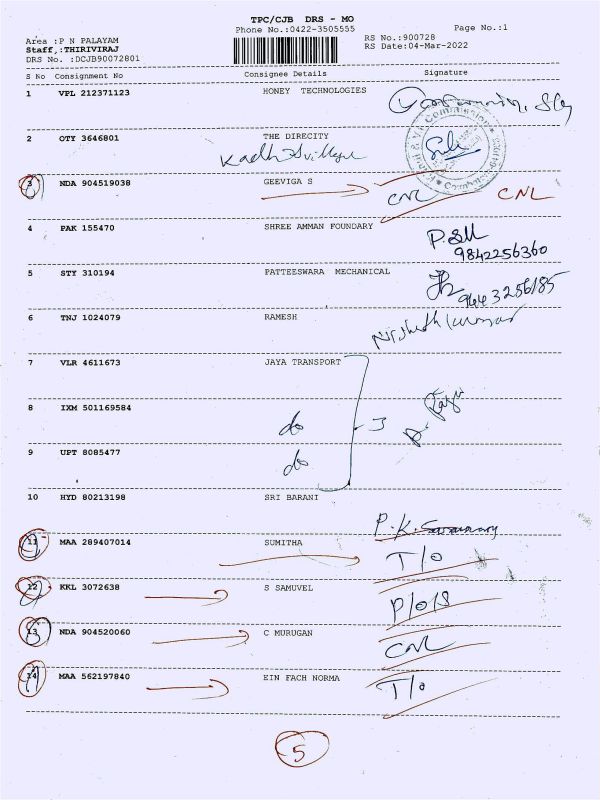 TPC/CJB DRS - MO
Phone No.:0422-3505555
Page No.:1
Area :P N PALAYAM
RS No.:900728
Staff,:THIRIVIRAJ
RS Date:04-Mar-2022
DRS No. :DCJB90072801
S No Consignment No Consignee Details Signature
1 VPL 212371123 HONEY TECHNOLOGIES
2 OTY 3646801 THE DIRECITY
3 NDA 904519038 GEEVIGA S CNL CNL
4 PAK 155470 SHREE AMMAN FOUNDARY
9842256360
5 STY 310194 PATTEESWARA MECHANICAL
9643256185
6 TNJ 1024079 RAMESH
7 VLR 4611673 JAYA TRANSPORT
8 IXM 501169584 do
9 UPT 8085477 do
10 HYD 80213198 SRI BARANI
11 MAA 289407014 SUMITHA T/O
12 KKL 3072638 S SAMUVEL
13 NDA 904520060 C MURUGAN CNL
14 MAA 562197840 EIN FACH NORMA T/O
5